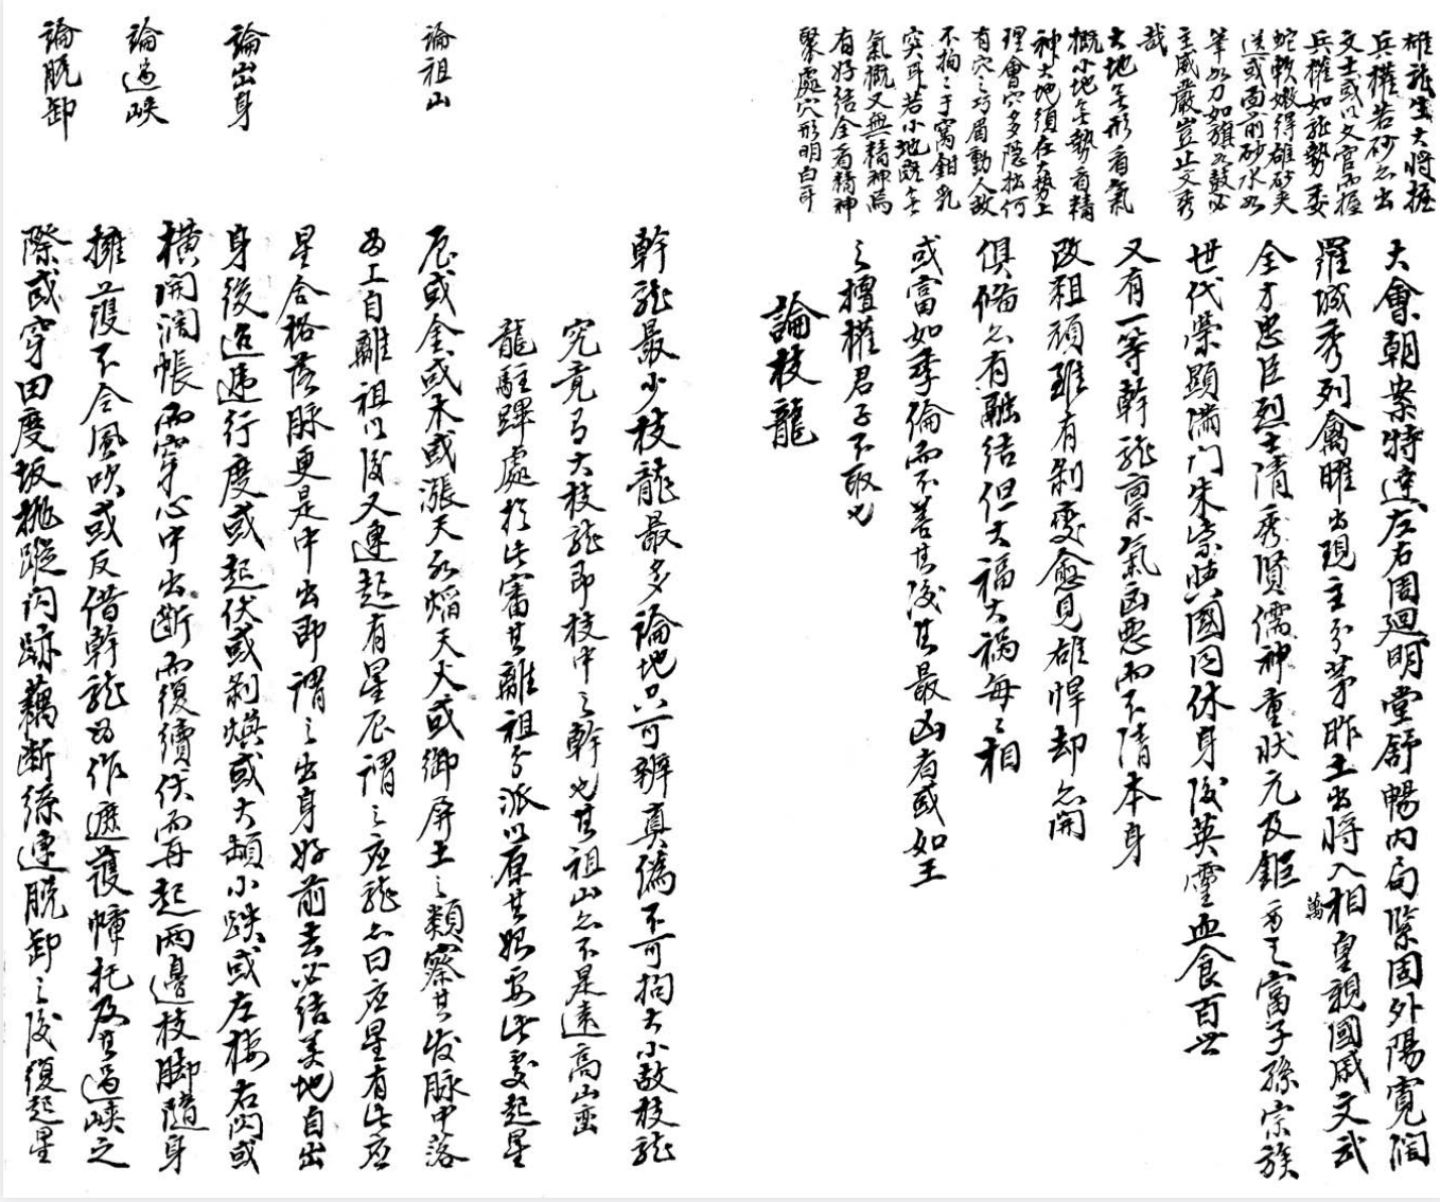 雄龍生大將握
兵權若砂亦出
文士或以文官而握
兵權如龍勢委
蛇軟嫩得雄砂夾
送或面前砂水如
筆如刀如旗如鼓必
主威嚴豈止文秀
哉
大地無形看氣
概小地無勢看精
神大地須在大勢上
理會穴多隱拙何
有穴之巧眉動人故
不拘拘于窩鉗乳
突耳若小地既無
氣概又無精神焉
有好結全看精神
聚處穴形明白耳
大會朝案特達左右周迴明堂舒暢內局緊固外陽寬濶
羅城秀列禽曜出現主分茅胙土出將入相皇親國戚文武
全才忠臣烈士清秀賢儒神童狀元及鉅萬之富子孫宗族
世代榮顯滿門朱紫與國同休身後英靈血食百世
又有一等幹龍稟氣凶惡而不清本身
改粗頑雖有剝變愈見雄悍却亦開
俱備亦有融結但大福大禍每每相
或富如季倫而不善其後其最凶者或如王
之擅權君子不取也
論枝龍
幹龍最少枝龍最多論地只可辨真偽不可拘大小故枝龍
究竟乃大枝龍即枝中之幹也其祖山亦不是遠高山巒
龍駐蹕處於此審其離祖分派以原其始要此處起星
論祖山
辰或金或木或漲天水熖天火或御屏土之類察其發脉中落
為工自離祖以後又連起有星辰謂之應龍亦曰應星有此應
星合格落脉更是中出即謂之出身好前去必結美地自出
論出身
身後迢遞行度或起伏或剝煥或大頓小跌或左棲右閃或
橫開濶帳而穿心中出斷而復續伏而再起兩邊枝脚隨身
論過峽
擁護不令風吹或反借幹龍為作遮護幛托及其過峽之
論脫卸
際或穿田度坂拋蹤閃跡藕斷絲連脫卸之後復起星